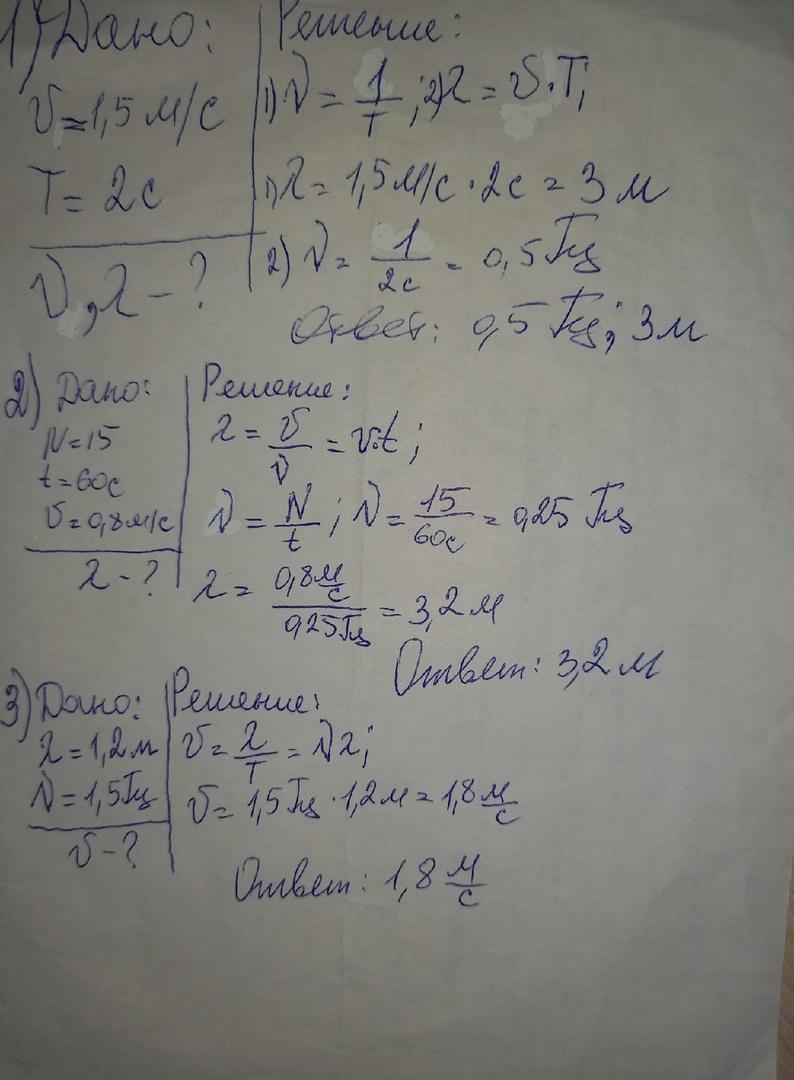 1) Дано:
υ = 1,5 м/с
T = 2с
ν, λ - ?
Решение:
1) ν = 1/T ; 2) λ = υ·T;
1) λ = 1,5 м/с · 2с = 3 м
2) ν = 1/2с = 0,5 Гц
Ответ: 0,5 Гц; 3 м
2) Дано:
N = 15
t = 60с
υ = 0,8 м/с
λ - ?
Решение:
λ = υ/ν = υ·t ;
ν = N/t ; ν = 15/60с = 0,25 Гц
λ = 0,8 м/с / 0,25 Гц = 3,2 м
Ответ: 3,2 м
3) Дано:
λ = 1,2 м
ν = 1,5 Гц
υ - ?
Решение:
υ = λ/T = νλ;
υ = 1,5 Гц · 1,2 м = 1,8 м/с
Ответ: 1,8 м/с